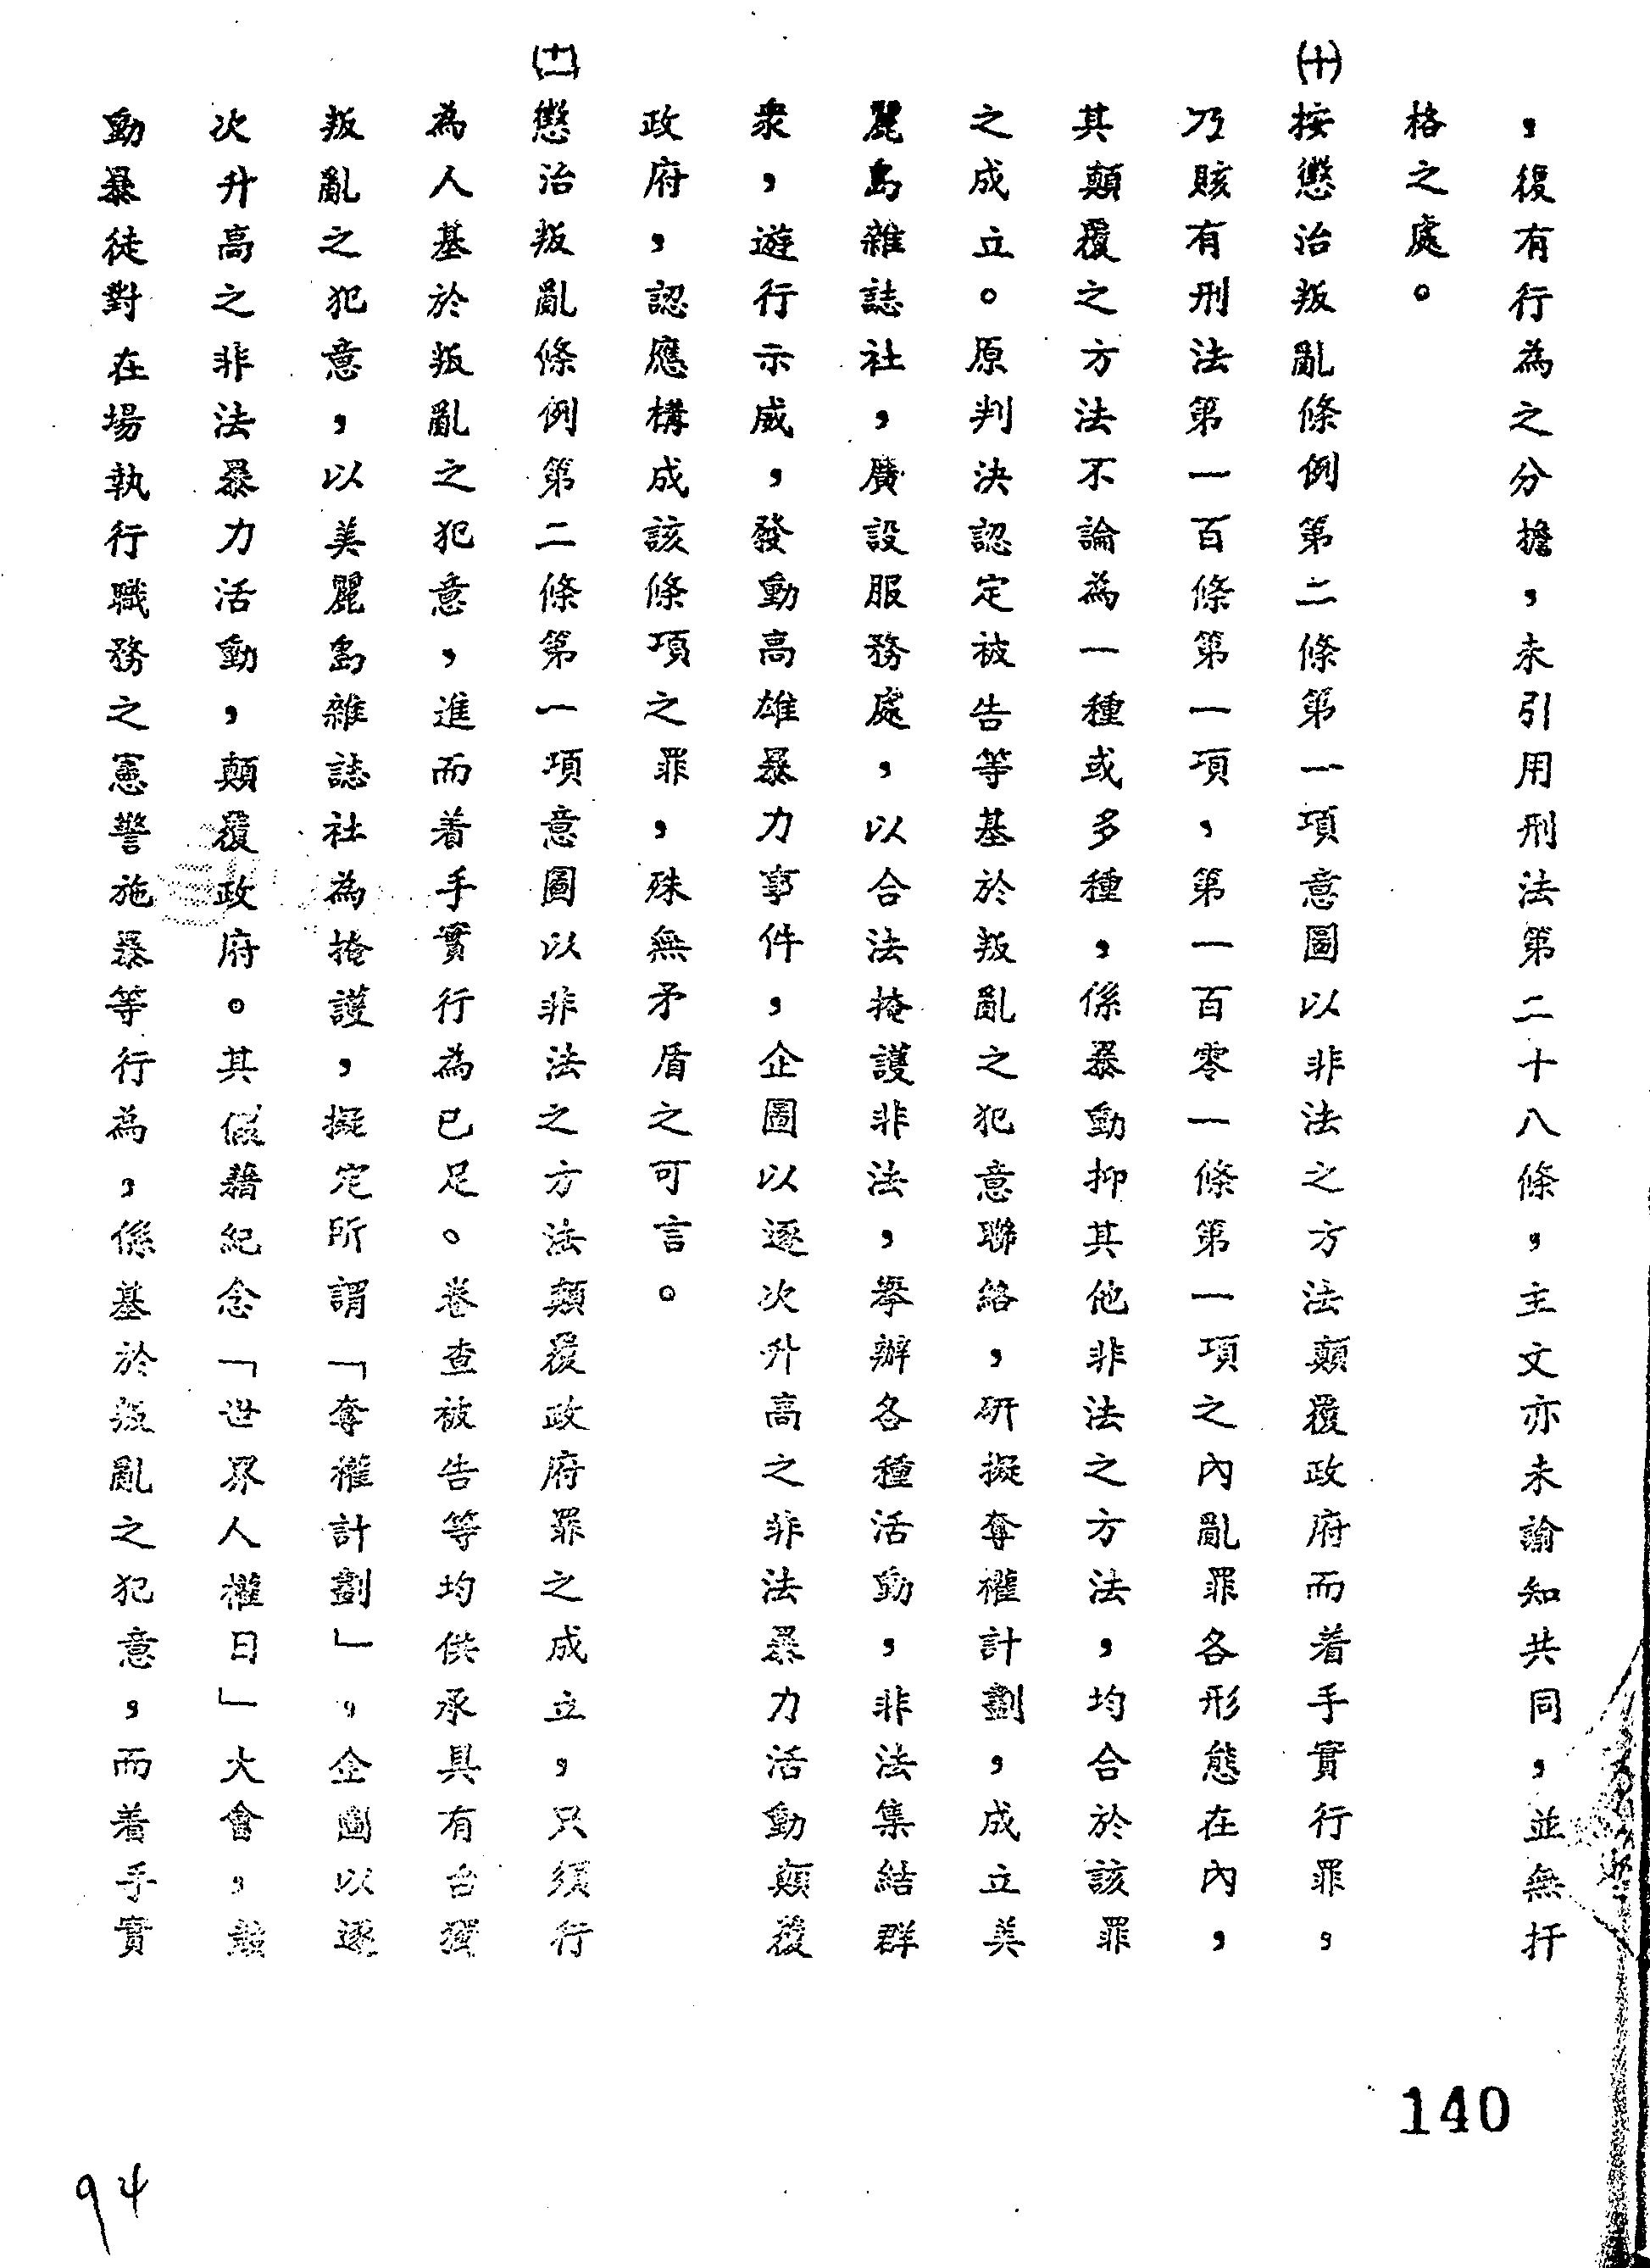 ，復有行為之分擔，未引用刑法第二十八條，主文亦未諭知共同，並無扞
格之處。
㈩按懲治叛亂條例第二條第一項意圖以非法之方法顛覆政府而着手實行罪，
乃賅有刑法第一百條第一項，第一百零一條第一項之內亂罪各形態在內，
其顛覆之方法不論為一種或多種，係暴動抑其他非法之方法，均合於該罪
之成立。原判決認定被告等基於叛亂之犯意聯絡，研擬奪權計劃，成立美
麗島雜誌社，廣設服務處，以合法掩護非法，舉辦各種活動，非法集結群
衆，遊行示威，發動高雄暴力事件，企圖以逐次升高之非法暴力活動顛覆
政府，認應構成該條項之罪，殊無矛盾之可言。
(十二)懲治叛亂條例第二條第一項意圖以非法之方法顛覆政府罪之成立，只須行
為人基於叛亂之犯意，進而着手實行為已足。卷查被告等均供承具有台獨
叛亂之犯意，以美麗島雜誌社為掩護，擬定所謂「奪權計劃」，企圖以逐
次升高之非法暴力活動，顛覆政府。其假藉紀念「世界人權日」大會，鼓
動暴徒對在場執行職務之憲警施暴等行為，係基於叛亂之犯意，而着手實
140
94